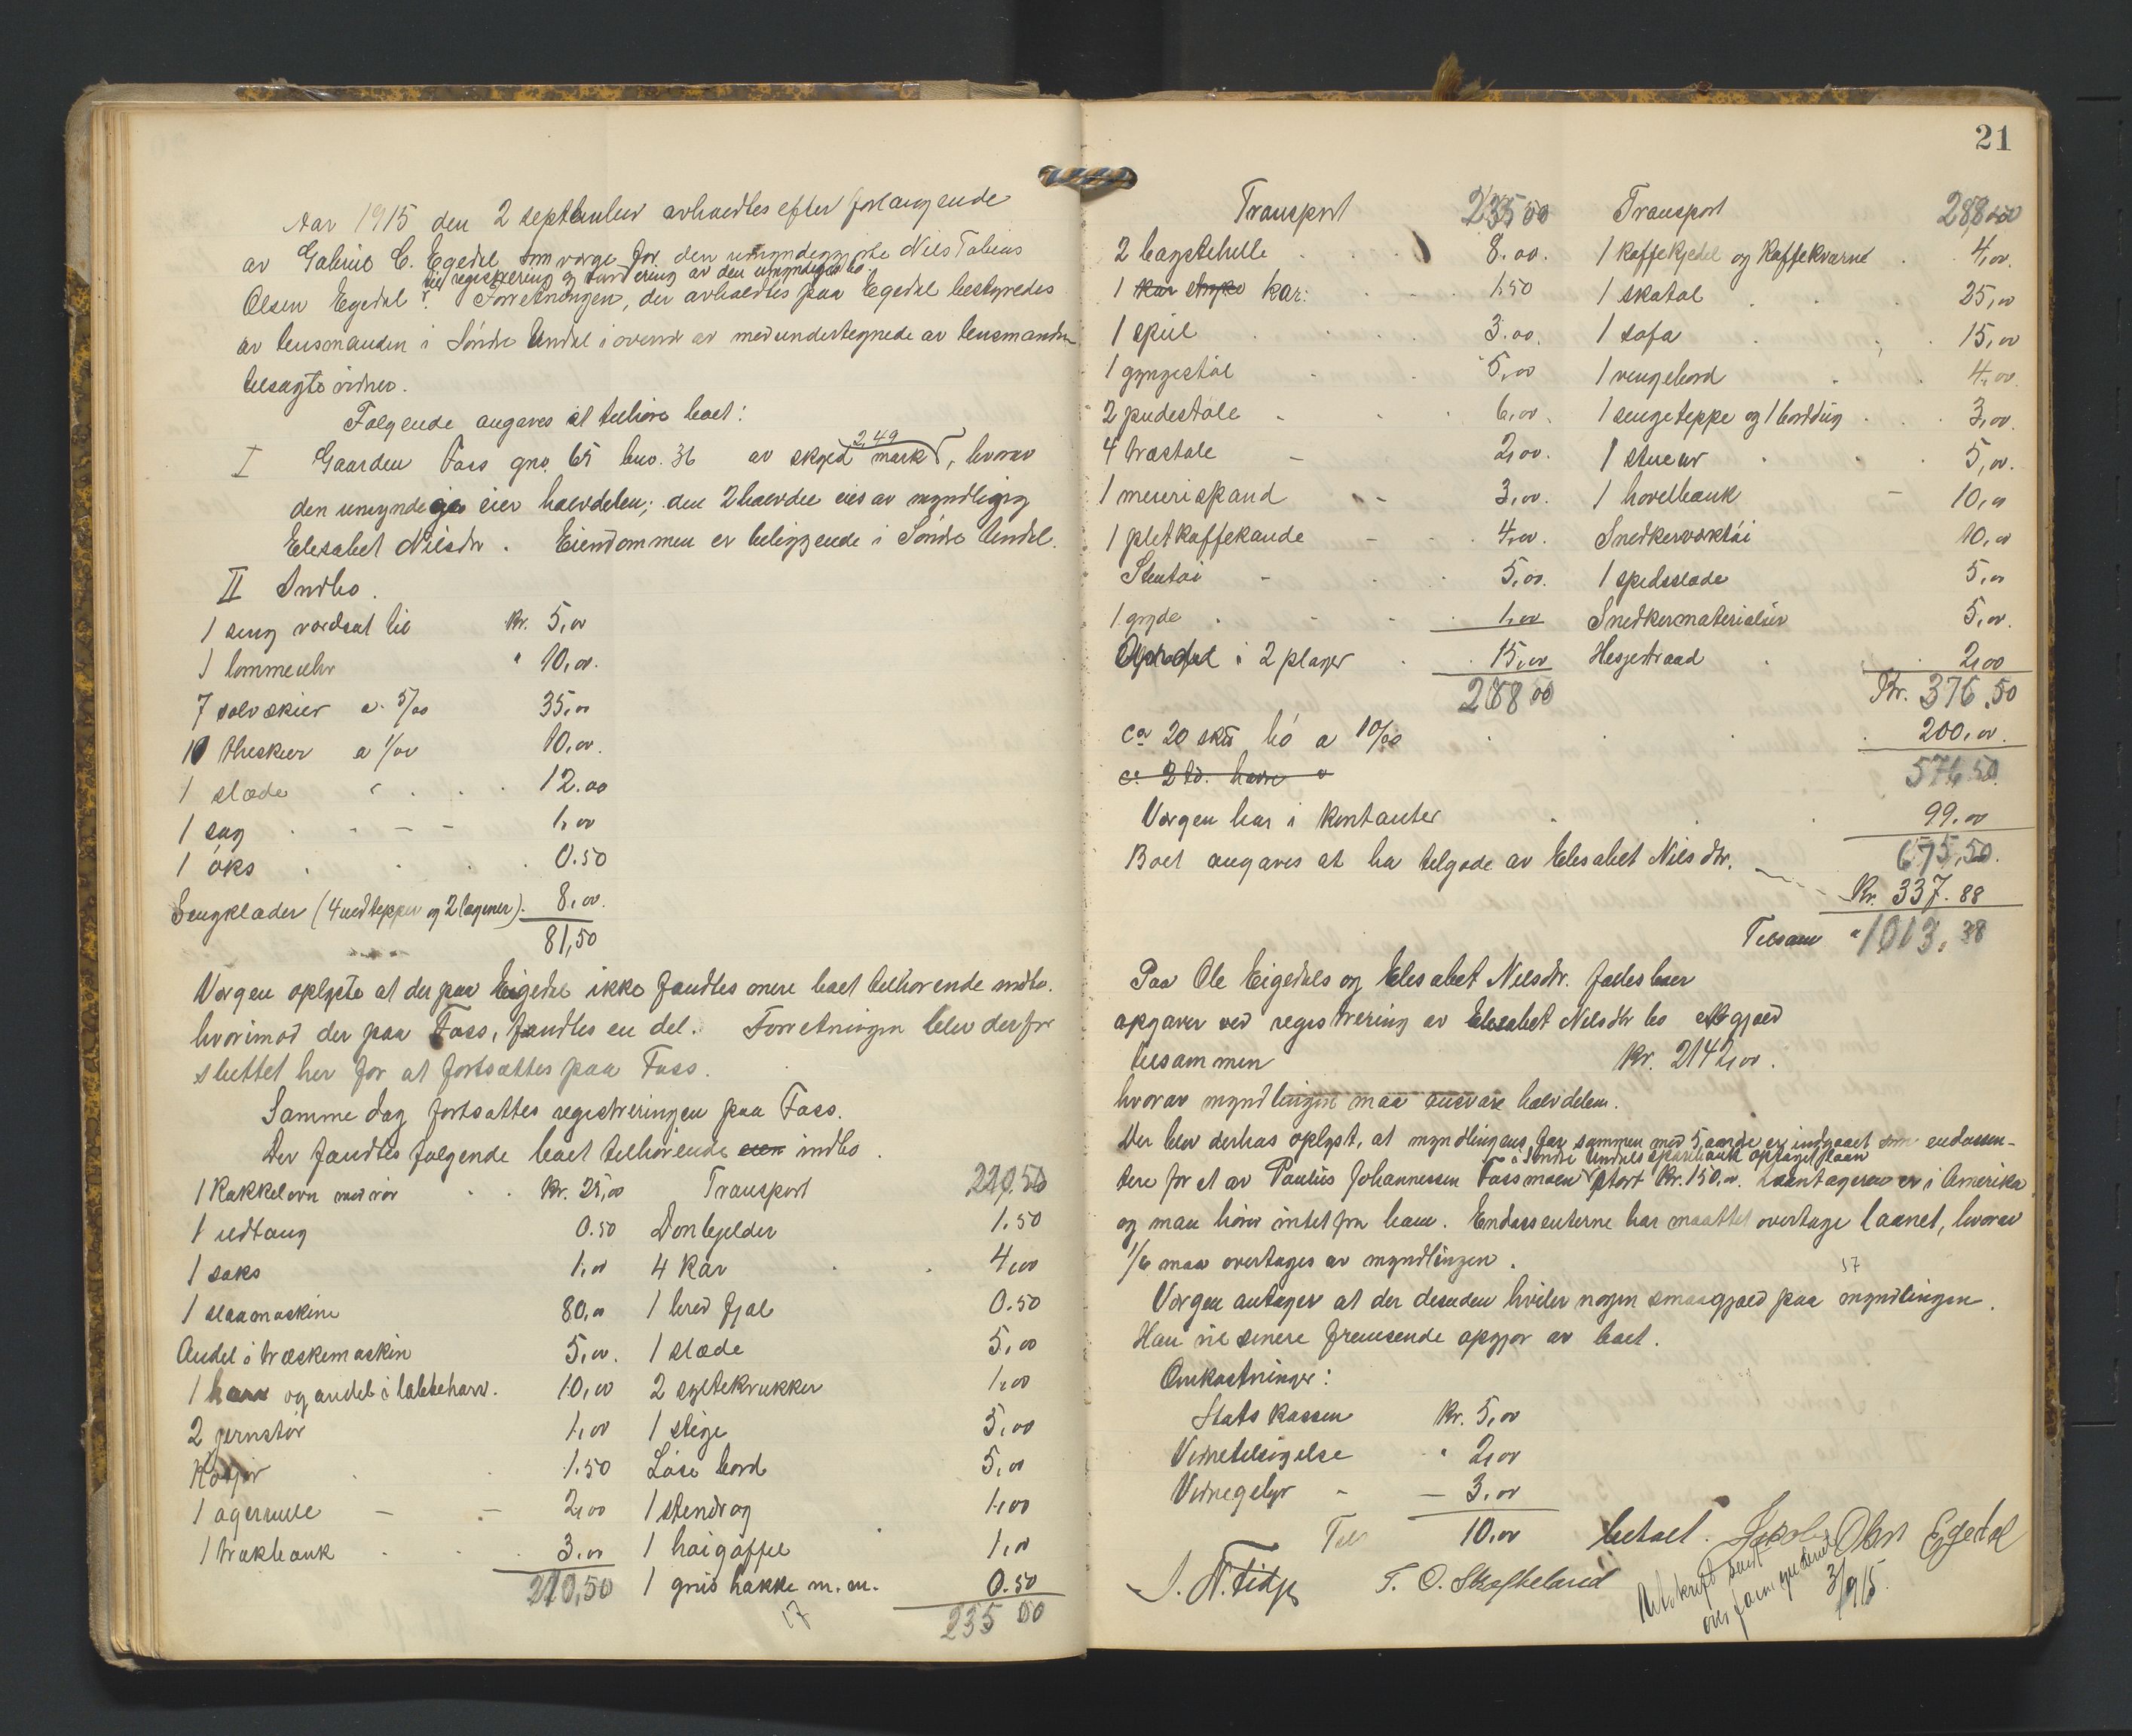 Aar 1915 den 2 september avholdtes efter forlangende
av Gabriel C. Egedal som værge for den umyndiggjorte Nils Tobias
til registrering og vurdering av den umyndiges bo
Olsen Egedal. Forretningen, der avholdtes paa Egedal bestyredes
av lensmanden i Söndre Undal i overvær av medundertegnede av lensmanden
tilsagte vidner.
Følgende angaves at tilhøre boet:
I Gaarden Foss gno. 65 bno. 36 av skyld mark 2,49, hvorav
den umyndige eier halvdelen; den 2 halvdel eies av myndling
Elesabet Nilsdtr. Eiendommen er beliggende i Söndre Undal.
II Indbo.
1 seng værdsat til Kr. 5,00
1 lommeuhr " 10,00.
7 sølvskeer a 5/00 35,00
10 theskeer a 1/00 10,00.
1 slæde 12.00
1 sag 1,00
1 öks 0.50
Sengklæder (4 uldtepper og 2 lagener). 8,00.
81,50
Værgen oplyste at der paa Eigedal ikke fandtes mere boet tilhørende indbo.
hvorimod der paa Foss, fandtes en del. Forretningen blev derfor
sluttet her for at fortsættes paa Foss.
Samme dag fortsattes registreringen paa Foss.
Der fandtes følgende boet tilhørende indbo.
1 Kakkelovn med rör Kr. 25,00 Transport 220.50
1 ildtang 0.50 Donbjelder 1.50
1 saks 1,00 4 Kar 4,00
1 slaamaskine 80,00 1 bred fjøl 0.50
Andel i træskemaskin 5,00. 1 slæde 5,00
1 harv og andel i labbeharv. 10,00 2 syltekrukker 1,00
2 jernstör 1,00 1 stige 5,00
1.50 Löse bord 5,00
1 agerrulle 2,00 1 stendrog 1,00
1 trækbænk 3,00 1 høigaffel 1,00
210,50 1 grus hakke m.m. 0.50
235 00
21
Transport 235 00 Transport 288,00
2 bagstehelle 8.00. 1 kaffekjedel og Kaffekværn 4,00.
1 kar 1,50 1 skatol 25,00
1 speil 3.00. 1 sofa 15,00
1 gyngestol 5,00 1 vengebord 4,00.
2 pudestole 6,00. 1 sengeteppe og 1 borddug 3,00.
4 træstole 2,00. 1 stueur 5,00.
1 meierispand 3,00. 1 hovelbænk 10,00
1 pletkaffekande 4,00. Snedkerværktöi 10,00
Stentöi 5,00. 1 spidsslæde 5,00
1 gryde 1,00 Snedkermaterialier 5,00.
i 2 plager 15,00 Hesjetraad 2,00
288 00 Kr. 376.50
ca 20 skd hö a 10/00 200,00.
ca 2 td. havre a 576.50
Værgen har i Kontanter 99.00
Boet angaves at ha tilgode av Elesabet Nilsdtr. 675,50.
Kr. 337.88
Tilsam " 1013.38
Paa Ole Eigedals og Elesabet Nilsdtr. fælesboer
opgaves ved registrering av Elesabet Nilsdtr bo gjæld
tilsammen Kr. 2142,00.
hvorav myndlingen maa ansvare halvdelen.
Der blev derhos oplyst, at myndlingens far sammen med 5 andre er indgaaet som endossen-
i Söndre Undals sparebank optaget laan
tere for et av Paulus Johannessen Fossmoen stort Kr. 150,00. Laantageren er i Amerika
og man hörer intet fra ham. Endossenterne har maattet overtage laanet, hvorav
1/6 maa overtages av myndlingen.
Værgen antager at der desuden hviler nogen smaagjæld paa myndlingen.
Han vil senere fremsende opgjør av boet.
Omkostninger:
Statskassen Kr. 5,00
Vidnetilsigelse " 2,00
Vidnegebyr 3,00
Til 10,00 betalt. Jakob Olsen Egedal
T. O. Skofteland
Utskrift sendt
overformynderiet
3/9 15.